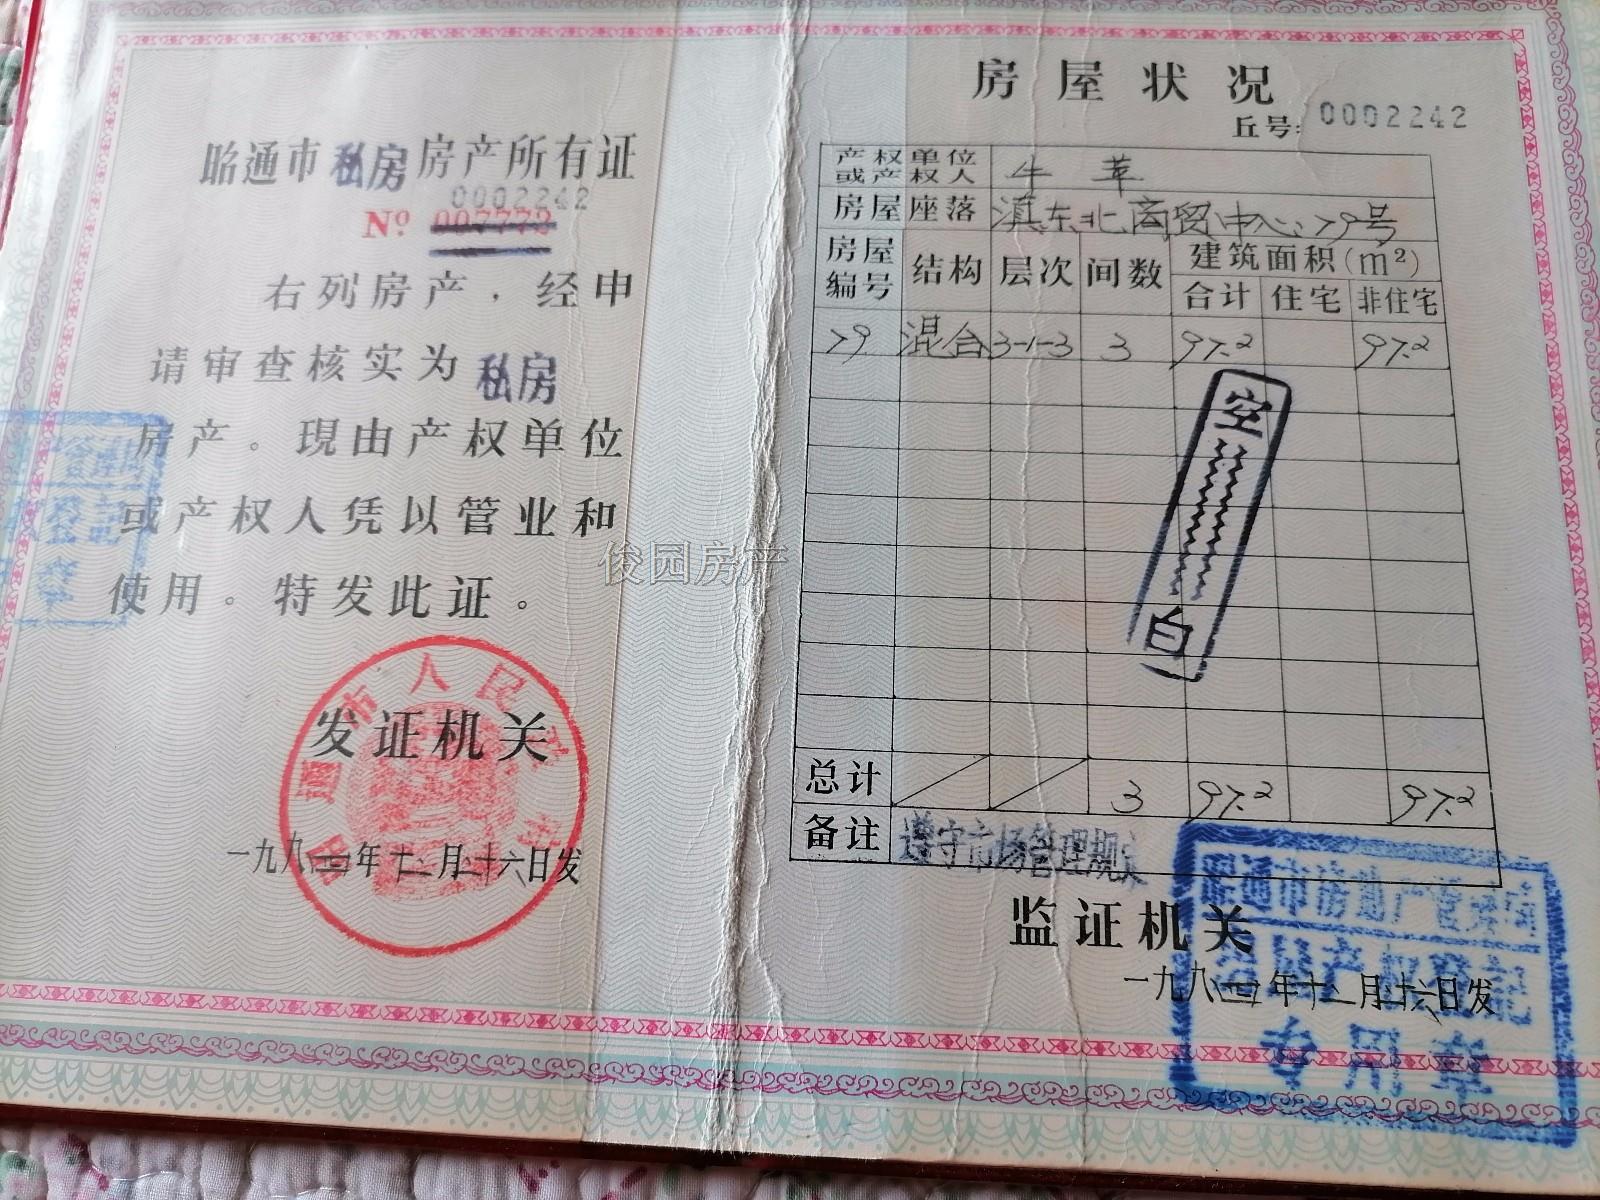 昭通市私房房产所有证
0002242
Nº 007772
右列房产，经申
请审查核实为私房
房产。現由产权单位
或产权人凭以管业和
使用。特发此证。
发证机关
昭通市人民政府
年十二月二十六日发
俊园房产
房屋状况
丘号：0002242
产权单位或产权人 牛苹
房屋座落 滇东北商贸中心79号
房屋编号 结构 层次 间数 建筑面积(m²)
合计 住宅 非住宅
79 混合 3-1-3 3 97.2 97.2
空白
总计 3 97.2 97.2
备注 遵守市场管理规定
监证机关
年十二月二十六日发
昭通市房地产管理
产权登记
专用章